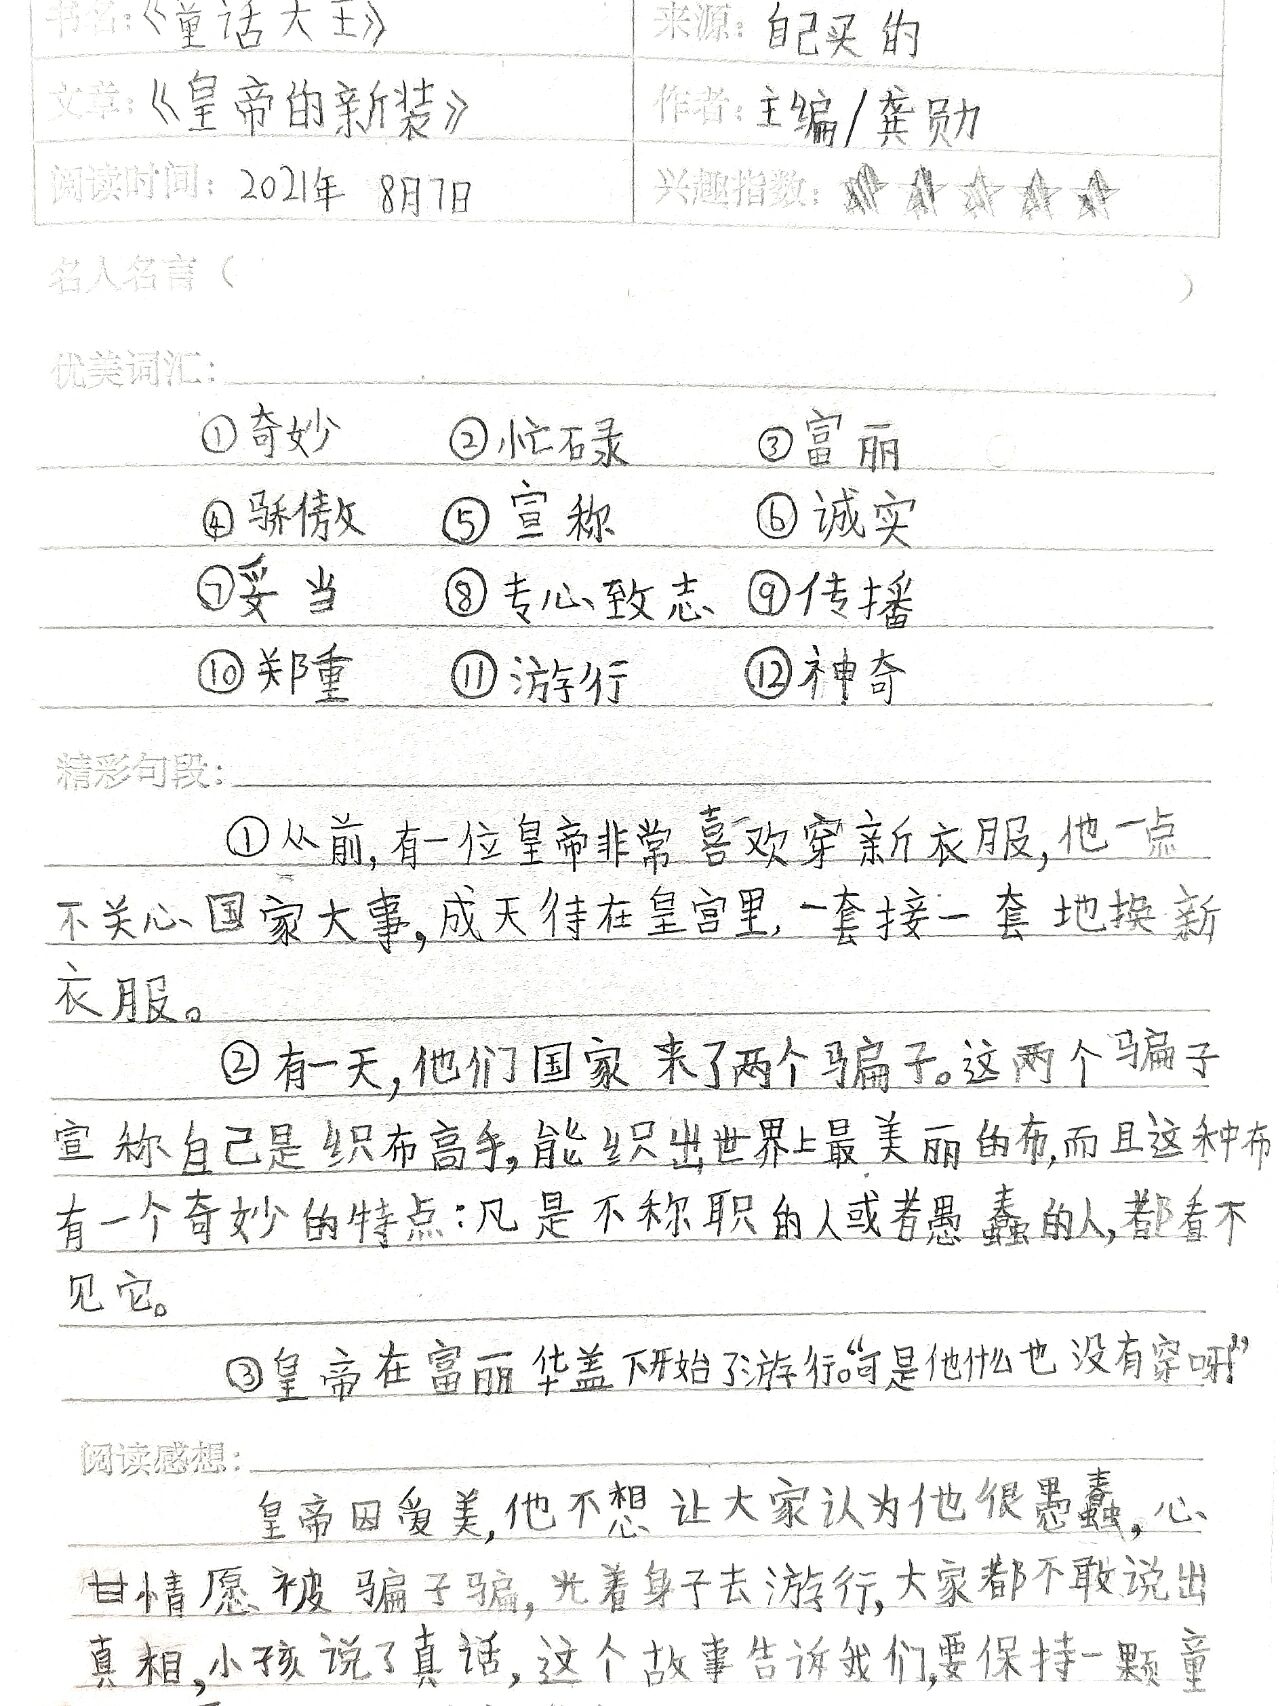 书名:《童话大王》 来源: 自己买的
文章:《皇帝的新装》 作者: 主编/龚勋
阅读时间: 2021年 8月7日 兴趣指数:
名人名言( )
优美词汇:
①奇妙 ②忙碌 ③富丽
④骄傲 ⑤宣称 ⑥诚实
⑦妥当 ⑧专心致志 ⑨传播
⑩郑重 ⑪游行 ⑫神奇
精彩句段:
①从前,有一位皇帝非常喜欢穿新衣服,他一点
不关心国家大事,成天待在皇宫里,一套接一套地换新
衣服。
②有一天,他们国家来了两个骗子。这两个骗子
宣称自己是织布高手,能织出世界上最美丽的布,而且这种布
有一个奇妙的特点:凡是不称职的人或者愚蠢的人,都看不
见它。
③皇帝在富丽华盖下开始了游行。“可是他什么也没有穿呀!”
阅读感想:
皇帝因爱美,他不想让大家认为他很愚蠢,心
甘情愿被骗子骗,光着身子去游行,大家都不敢说出
真相,小孩说了真话,这个故事告诉我们,要保持一颗童